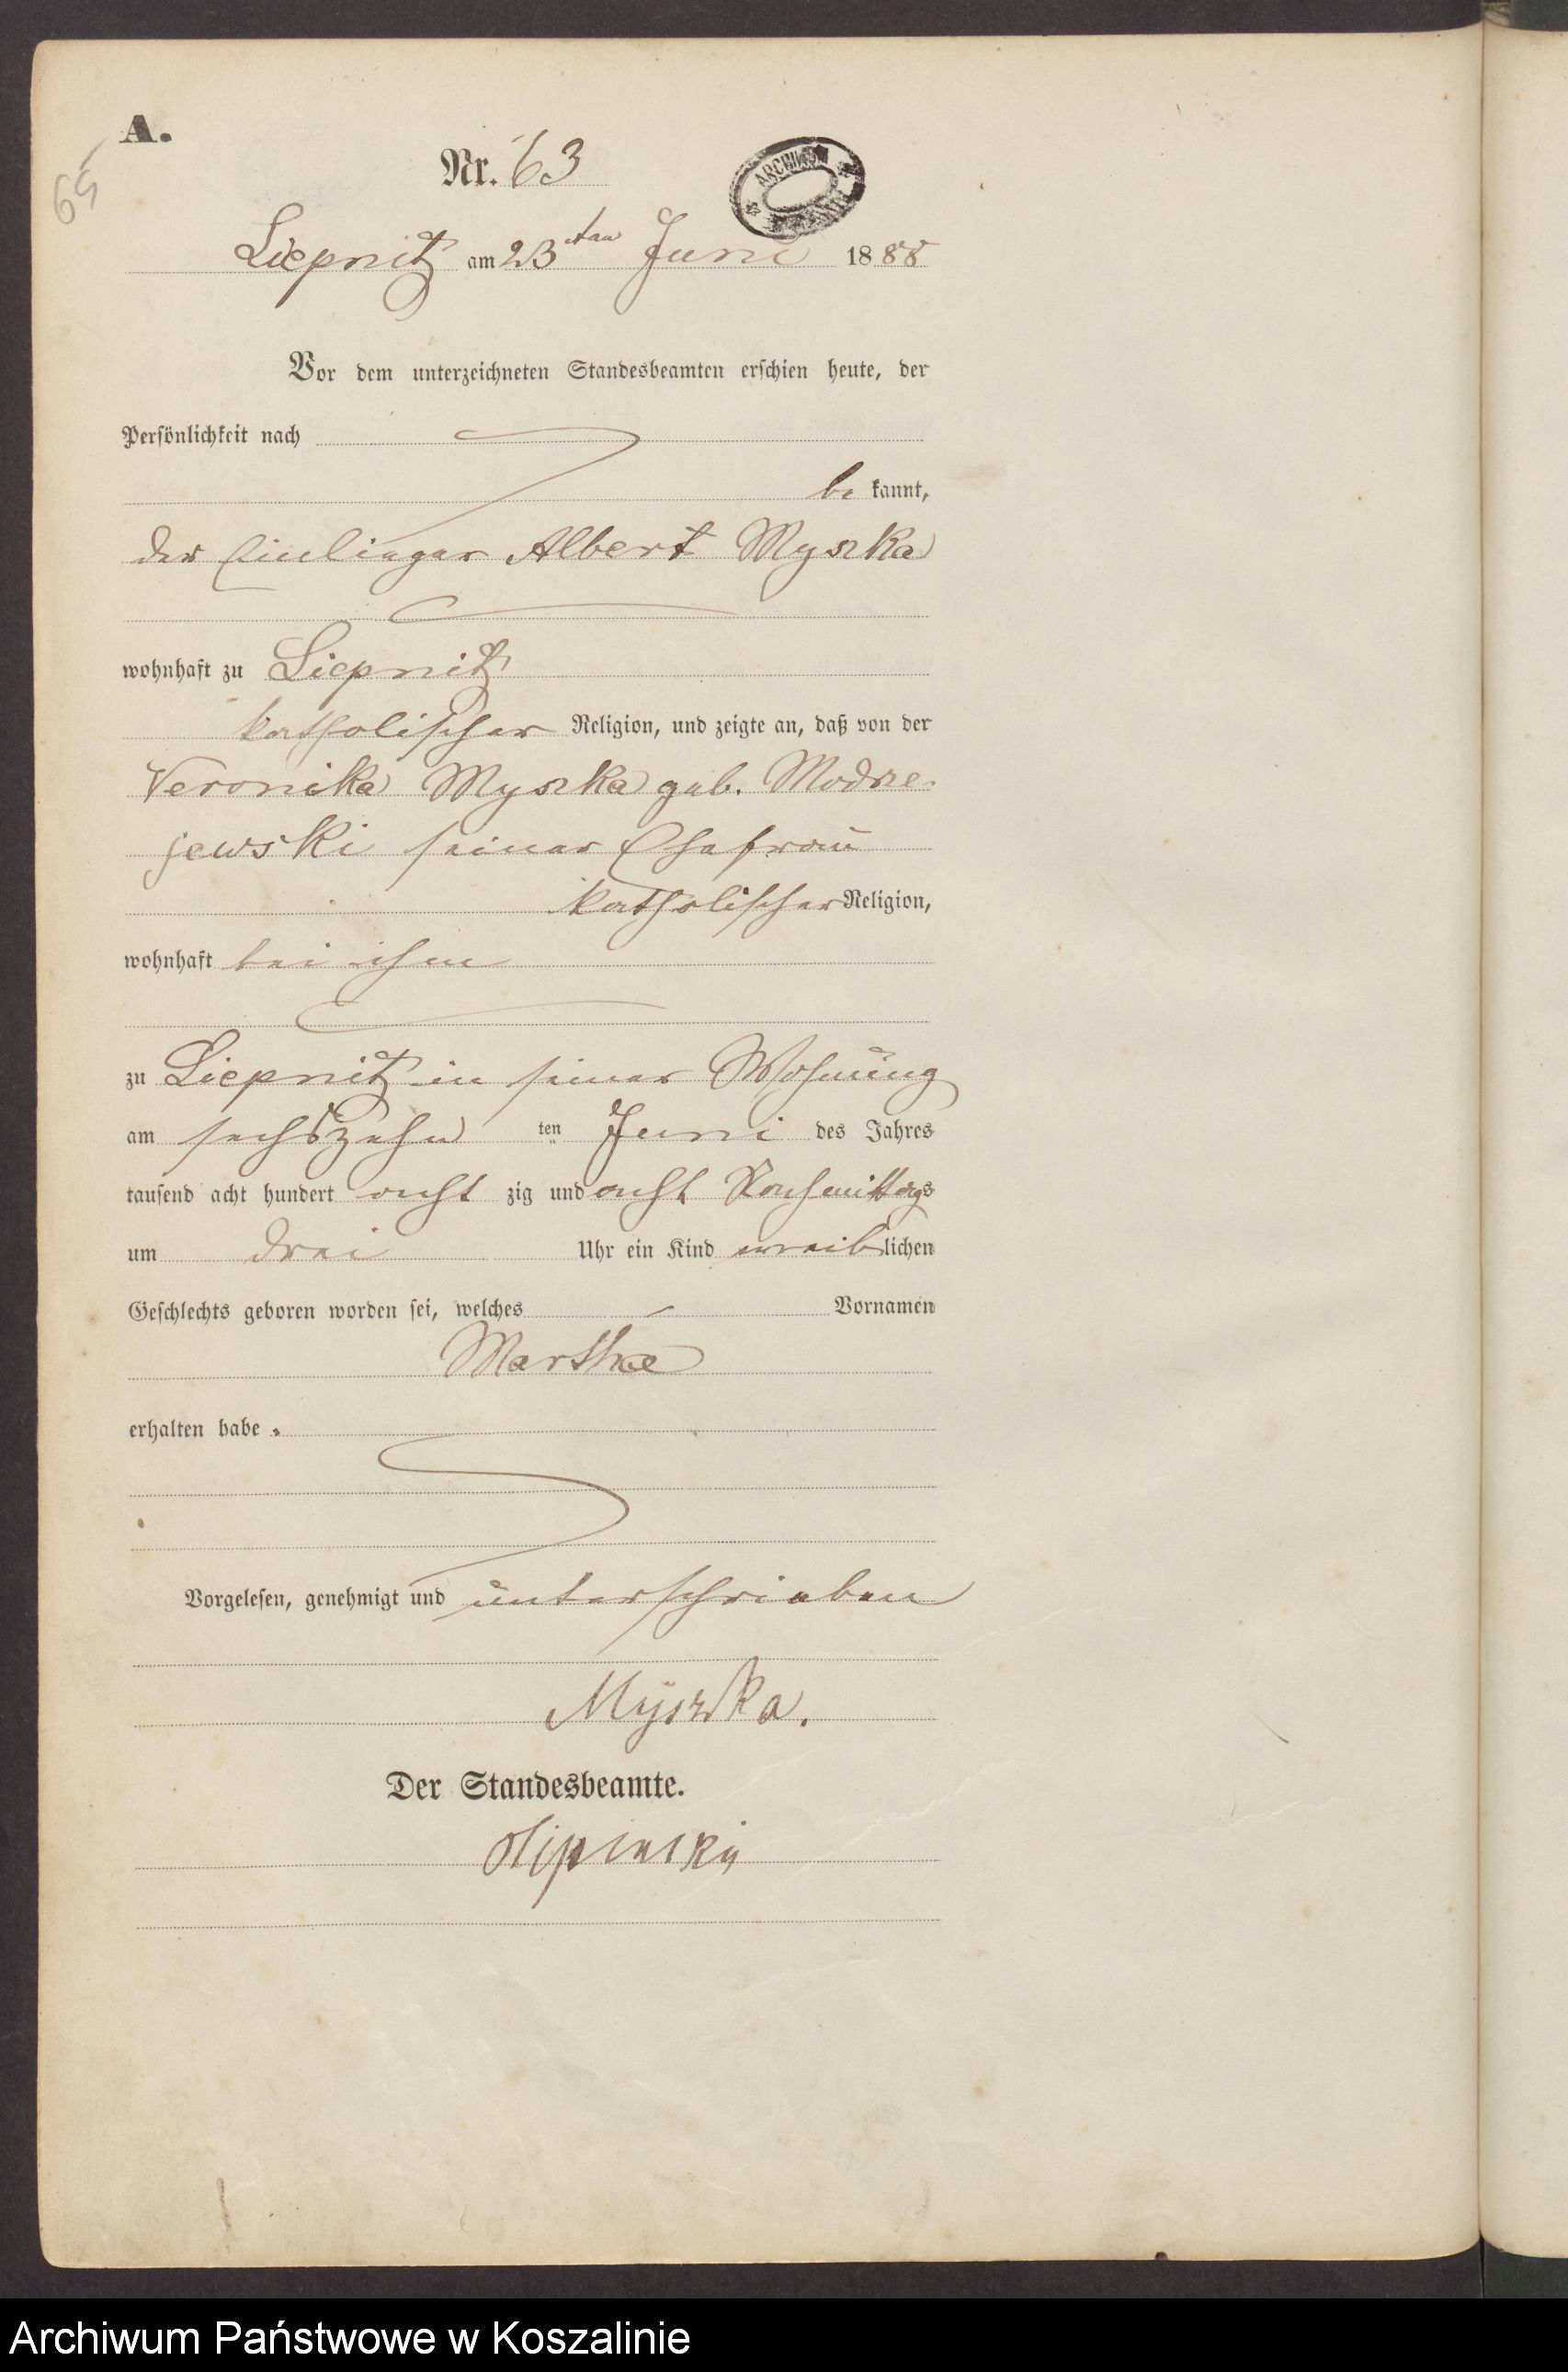 A.
65
Nr. 63
ARCHIWUM
Liepnitz am 23ten Juni 1888
Vor dem unterzeichneten Standesbeamten erschien heute, der
Persönlichkeit nach
be kannt,
der Einlieger Albert Myszka
wohnhaft zu Liepnitz
katholischer Religion, und zeigte an, daß von der
Veronika Myszka geb. Modrze-
jewski seiner Ehefrau
katholischer Religion,
wohnhaft bei ihm
zu Liepnitz in seiner Wohnung
am sechszehn ten Juni des Jahres
tausend acht hundert acht zig und acht Nachmittags
um drei Uhr ein Kind weiblichen
Geschlechts geboren worden sei, welches - Vornamen
Marthe
erhalten habe.
Vorgelesen, genehmigt und unterschrieben
Myszka.
Der Standesbeamte.
Archiwum Państwowe w Koszalinie